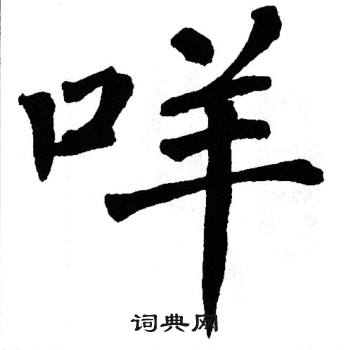 咩
词典网